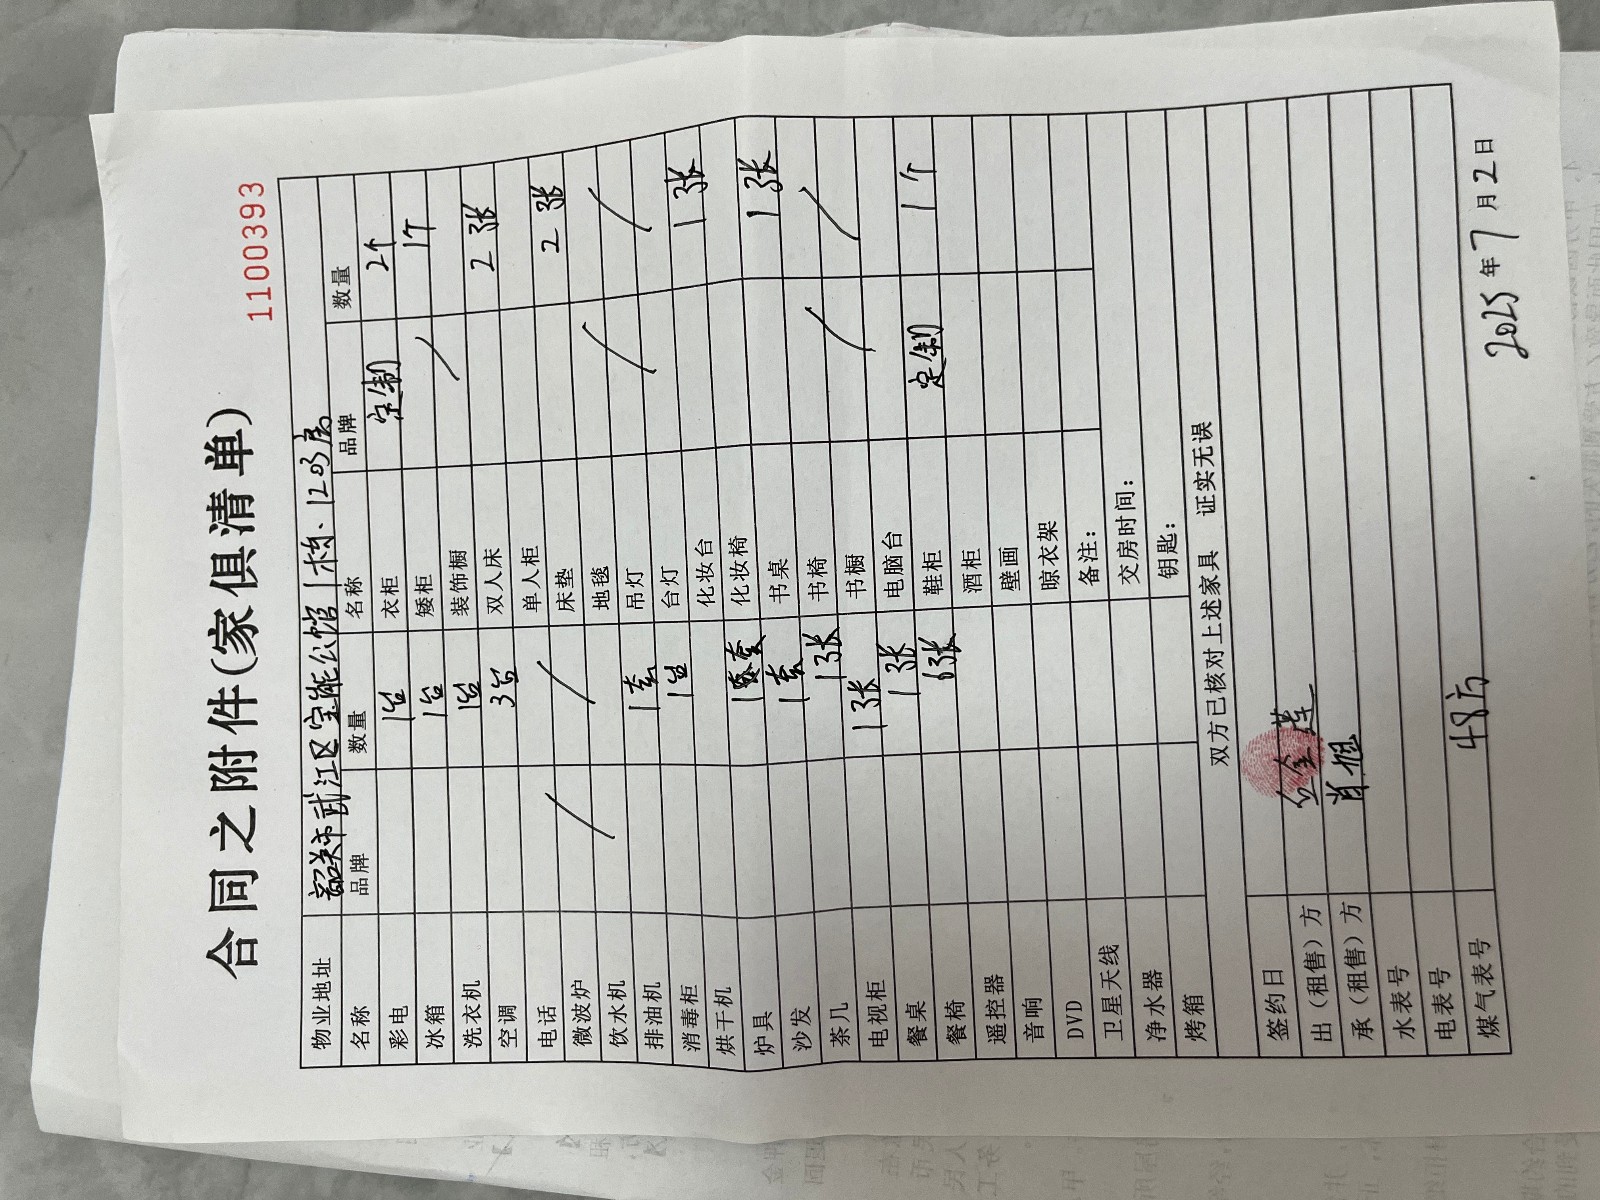 合同之附件(家俱清单)
1100393
物业地址 韶关市武江区宝能公馆1栋、1203房
名称 品牌 数量 名称 品牌 数量
彩电 1台 衣柜 定制 2个
冰箱 1台 矮柜 1个
洗衣机 1台 装饰橱
空调 3台 双人床 2张
电话 单人柜
微波炉 床垫 2张
饮水机 地毯
排油机 1套 吊灯
消毒柜 1台 台灯
烘干机 化妆台 1张
炉具 1套 化妆椅
沙发 1套 书桌 1张
茶几 1张 书椅
电视柜 1张 书橱
餐桌 1张 电脑台
餐椅 6张 鞋柜 定制 1个
遥控器 酒柜
音响 壁画
DVD 晾衣架
卫星天线 备注:
净水器 交房时间:
烤箱 钥匙:
双方已核对上述家具 证实无误
签约日
出(租售)方
承(租售)方 肖旭
水表号
电表号
煤气表号 48方
2025年7月2日